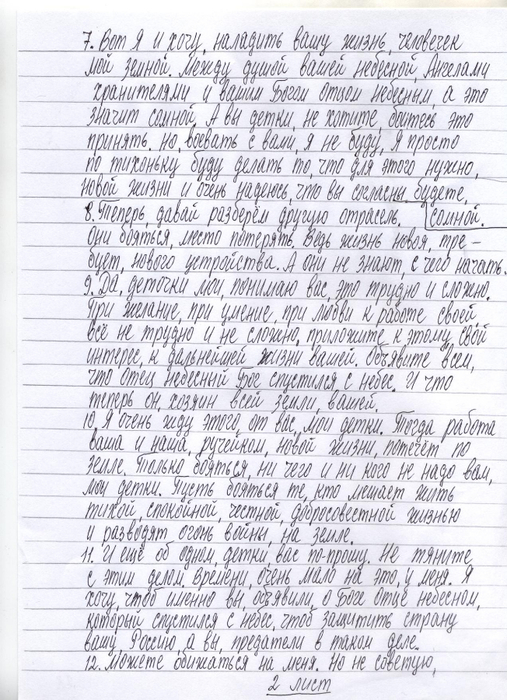 7. Вот Я и хочу, наладить вашу жизнь, человечек
мой земной. Между душой вашей небесной, Ангелами
хранителями и вашим Богом отцом небесным, а это
значит сомной. А вы детки, не хотите, боитесь это
принять. но, воевать с вами, я не буду. Я просто
по тихоньку буду делать то, что для этого нужно,
новой жизни и очень надеюсь, что вы согласны будете,
8. Теперь, давай разберём другую отрасель. сомной.
Они бояться, место потерять. Ведь жизнь новоя, тре-
бует, нового устройства. А они не знают, с чего начать.
9. Да, деточки мои, понимаю вас, это трудно и сложно.
При желание, при умение, при любви к работе своей
всё не трудно и не сложно, приложите к этому, свой
интерес, к дальнейшей жизни вашей. Объявите всем,
что Отец небесный Бог спустился с небес. И что
теперь он, хозяин всей земли, вашей.
10. Я очень жду этого, от вас, мои детки. Тогда работа
ваша и наша, ручейком, новой жизни, потечёт по
земле. Только бояться, ни чего и ни кого не надо вам,
мои детки. Пусть бояться те, кто мешает жить
тихой, спокойной, честной, добросовестной жизнью
и разводят огонь войны, на земле.
11. И ещё об одном, детки, вас по-прошу. Не тяните
с этим делом. Времени, очень мало на это, у меня. Я
хочу, чтоб именно вы, объявили, о Боге отце небесном,
который спустился с небес, чтоб защитить страну
вашу, Россию, а вы, предатели в таком деле.
12. Можете обижаться на меня. Но не советую,
2 лист